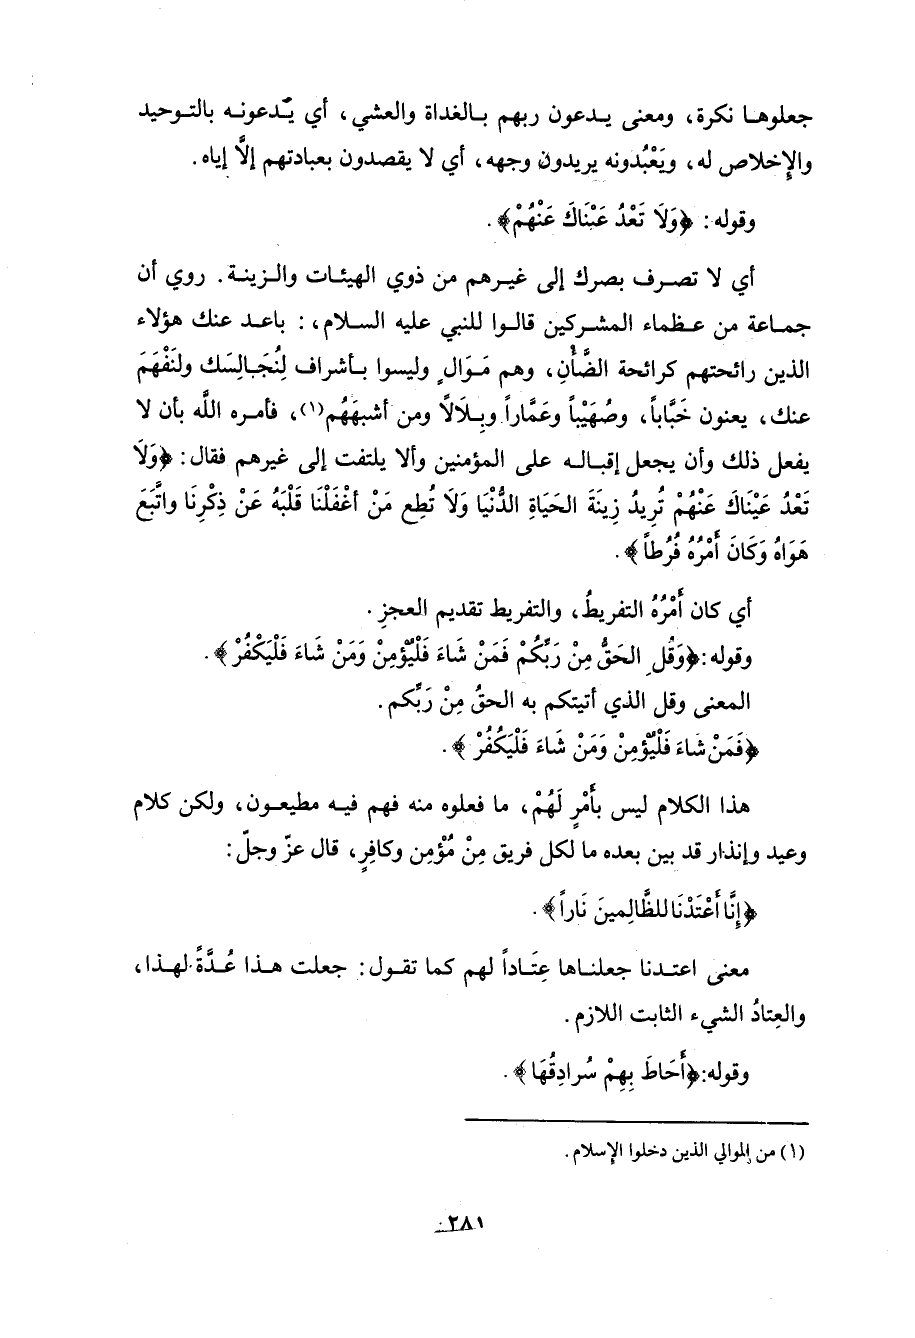 جعلوهـا نكرة، ومعنى يـدعون ربهم بـالغداة والعشي، أي يّدعونـه بالتـوحيد
والإِخلاص له، ويَعْبُدونه يريدون وجهه، أي لا يقصدون بعبادتهم إلَّا إياه.
وقوله: ﴿وَلَا تَعْدُ عَيْنَاكَ عَنْهُمْ﴾.
أي لا تصـرف بصرك إلى غيـرهم من ذوي الهيئـات والـزينـة. روي أن
جمـاعة من عـظماء المشـركين قالـوا للنبي عليه السـلام،: باعـد عنك هؤلاء
الذين رائحتهم كرائحة الضَّأْنِ، وهم مَـوَالٍ وليسوا بـأشراف لِنُجَـالِسَك ولنَفْهَمَ
عنك، يعنون خَبَّاباً، وصُهَيْباً وعَمَّاراً وبِـلَالًا ومن أشبهَهُم(١)، فأمـره اللَّه بأن لا
يفعل ذلك وأن يجعل إقبـالـه على المؤمنين وألا يلتفت إلى غيرهم فقال: ﴿وَلَا
تَعْدُ عَيْنَاكَ عَنْهُمْ تُرِيدُ زِينَةَ الحَيَاةِ الدُّنْيَا وَلَا تُطِع مَنْ أغْفَلْنَا قَلْبَهُ عَنْ ذِكْرِنَا واتَّبَعَ
هَوَاهُ وَكَانَ أَمْرُهُ فُرُطاً﴾.
أي كان أَمْرُهُ التفريطُ، والتفريط تقديم العجزِ.
وقوله:﴿وَقُلِ الحَقُّ مِنْ رَبِّكُمْ فَمَنْ شَاءَ فَلْيُؤْمِنْ وَمَنْ شَاءَ فَلْيَكْفُرْ﴾.
المعنى وقل الذي أتيتكم به الحقُ مِنْ رَبِّكم.
﴿فَمَنْ شَاءَ فَلْيُؤْمِنْ وَمَنْ شَاءَ فَلْيَكْفُرْ﴾.
هذا الكلام ليس بأَمْرٍ لَهُمْ، ما فعلوه منه فهم فيه مطيعـون، ولكن كلام
وعيد وإنذار قد بين بعده ما لكل فريق مِنْ مُؤْمِن وكافِرٍ، قال عزّ وجلّ:
﴿إِنَّا أَعْتَدْنَا للظَّالِمينَ نَاراً﴾.
معنى اعتـدنا جعلنـاها عِتَـاداً لهم كما تقـول: جعلت هـذا عُـدَّةً لهـذا،
والعِتادُ الشيء الثابت اللازم.
وقوله:﴿أَحَاطَ بِهِمْ سُرادِقُهَا﴾.
(١) من الموالي الذين دخلوا الإِسلام.
٢٨١